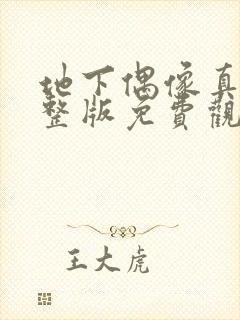 地下偶像真
整版免費觀
王大虎